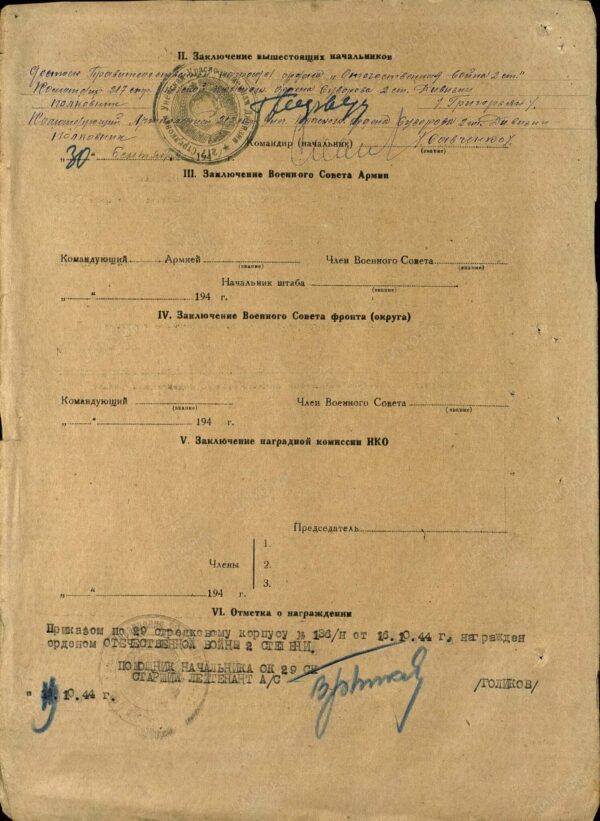 II. Заключение вышестоящих начальников
Достоин Правительственной награды ордена „Отечественная война 2 ст."
Командир 217 стр. ордена Суворова 2 ст. Дивизии
полковник
Командующий 217 ордена Суворова 2 ст. Дивизии
Полковник
Командир (начальник)
(звание)
„30" Сентября 194 г.
III. Заключение Военного Совета Армии
Командующий Армией Член Военного Совета
(звание) (звание)
Начальник штаба
(звание)
„ " 194 г.
IV. Заключение Военного Совета фронта (округа)
Командующий Член Военного Совета
(звание) (звание)
„ " 194 г.
V. Заключение наградной комиссии НКО
Председатель
1.
Члены 2.
3.
„ " 194 г.
VI. Отметка о награждении
Приказом по 29 стрелковому корпусу № 186/н от 16.10.44 г. награжден
орденом ОТЕЧЕСТВЕННОЙ ВОЙНЫ 2 СТЕПЕНИ.
ПОМОЩНИК НАЧАЛЬНИКА ОК 29 СК
СТАРШИЙ ЛЕЙТЕНАНТ А/С
/ГОЛИКОВ/
10.44 г.